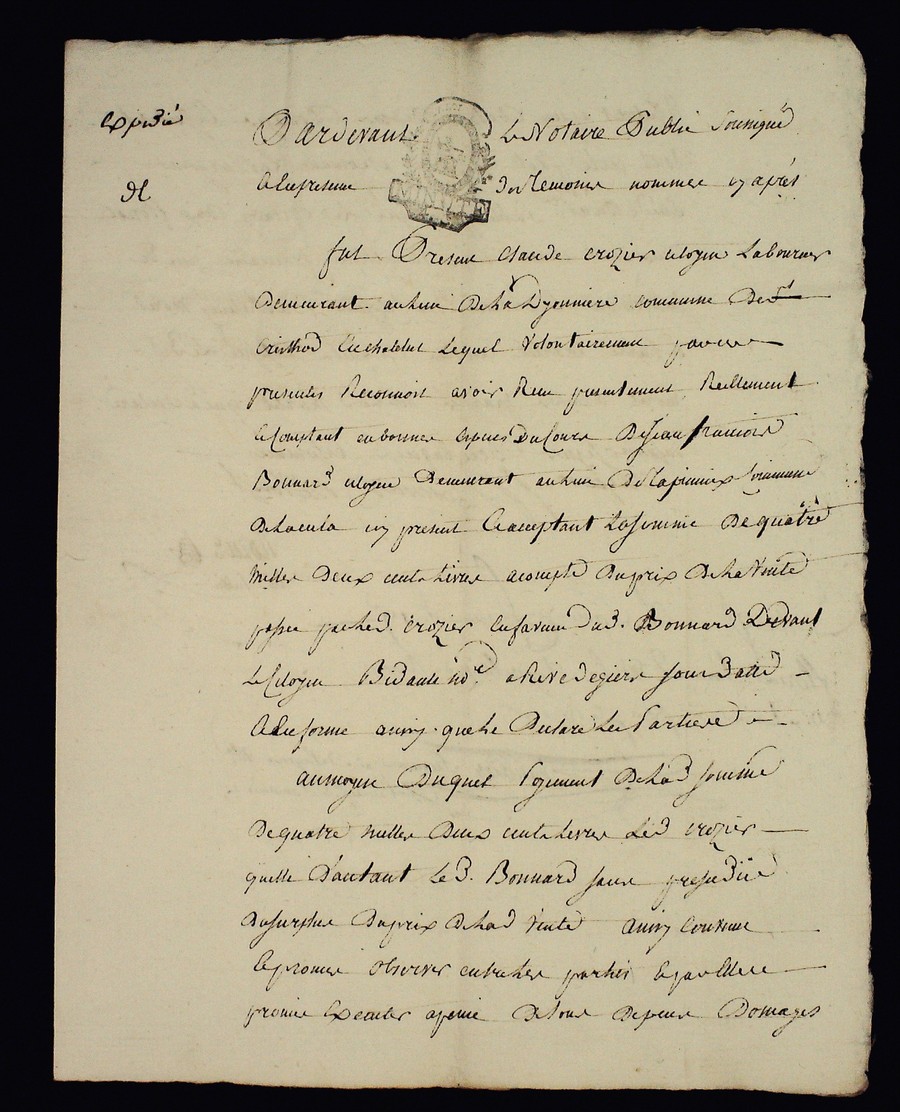 expedié
Pardevant Le Notaire Public Sousigné
MINUTE
et en presence des Temoins nommes cy après
fut Present Claude Crozier citoyen Laboureur
Demeurant au lieu De La Lyonniere commune De St
Cristhod En chatelut Lequel volontairement par ces
presentes Reconnoit avoir Recu presentement Reellement
et Comptant en bonnes especes Du Cours De Jean francois
Bonnard citoyen Demeurant au lieu De commune
De La cula cy present et acceptant La somme De quatre
milles Deux cents Livres a compte Du prix De La vente
passée par led. Crozier en faveur Dud. Bonnard Devant
Le Citoyen Bidault nore. a Rive de gier sous Datte
et en forme ainsy que Le Declare Les Parties
au moyen Duquel Payement De Lad somme
De quatre milles Deux cents Livres Led Crozier
quitte D'autant Le d. Bonnard sans prejudice
Du surplus Du prix De Lad vente ainsy Convenu
et promis observer entre Les parties et par Elles
promis Executer a peine De tous Depens Domages